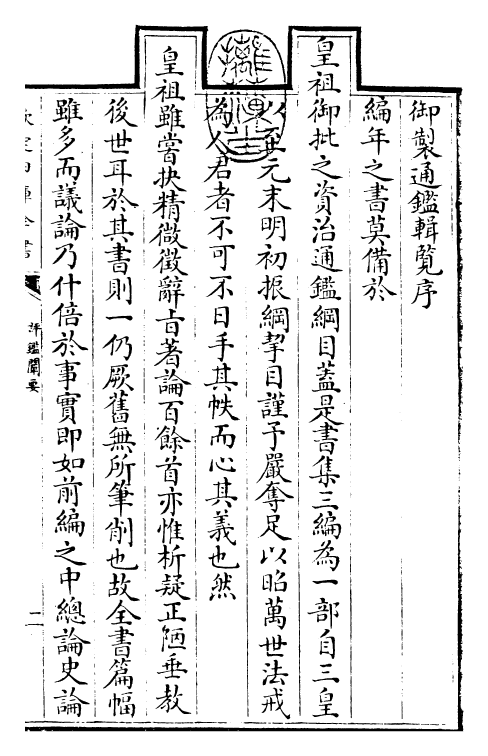 御製通鑑輯覽序
編年之書莫備於
皇祖御批之資治通鑑綱目蓋是書集三編為一部自三皇
以至元末明初振綱挈目謹予嚴奪足以昭萬世法戒
為人君者不可不日手其帙而心其義也然
皇祖雖嘗抉精微徵辭㫖著論百餘首亦惟析疑正陋垂教
後世耳於其書則一仍厥舊無所筆削也故全書篇幅
雖多而議論乃什倍於事實即如前編之中總論史論
評鑑闡要
二